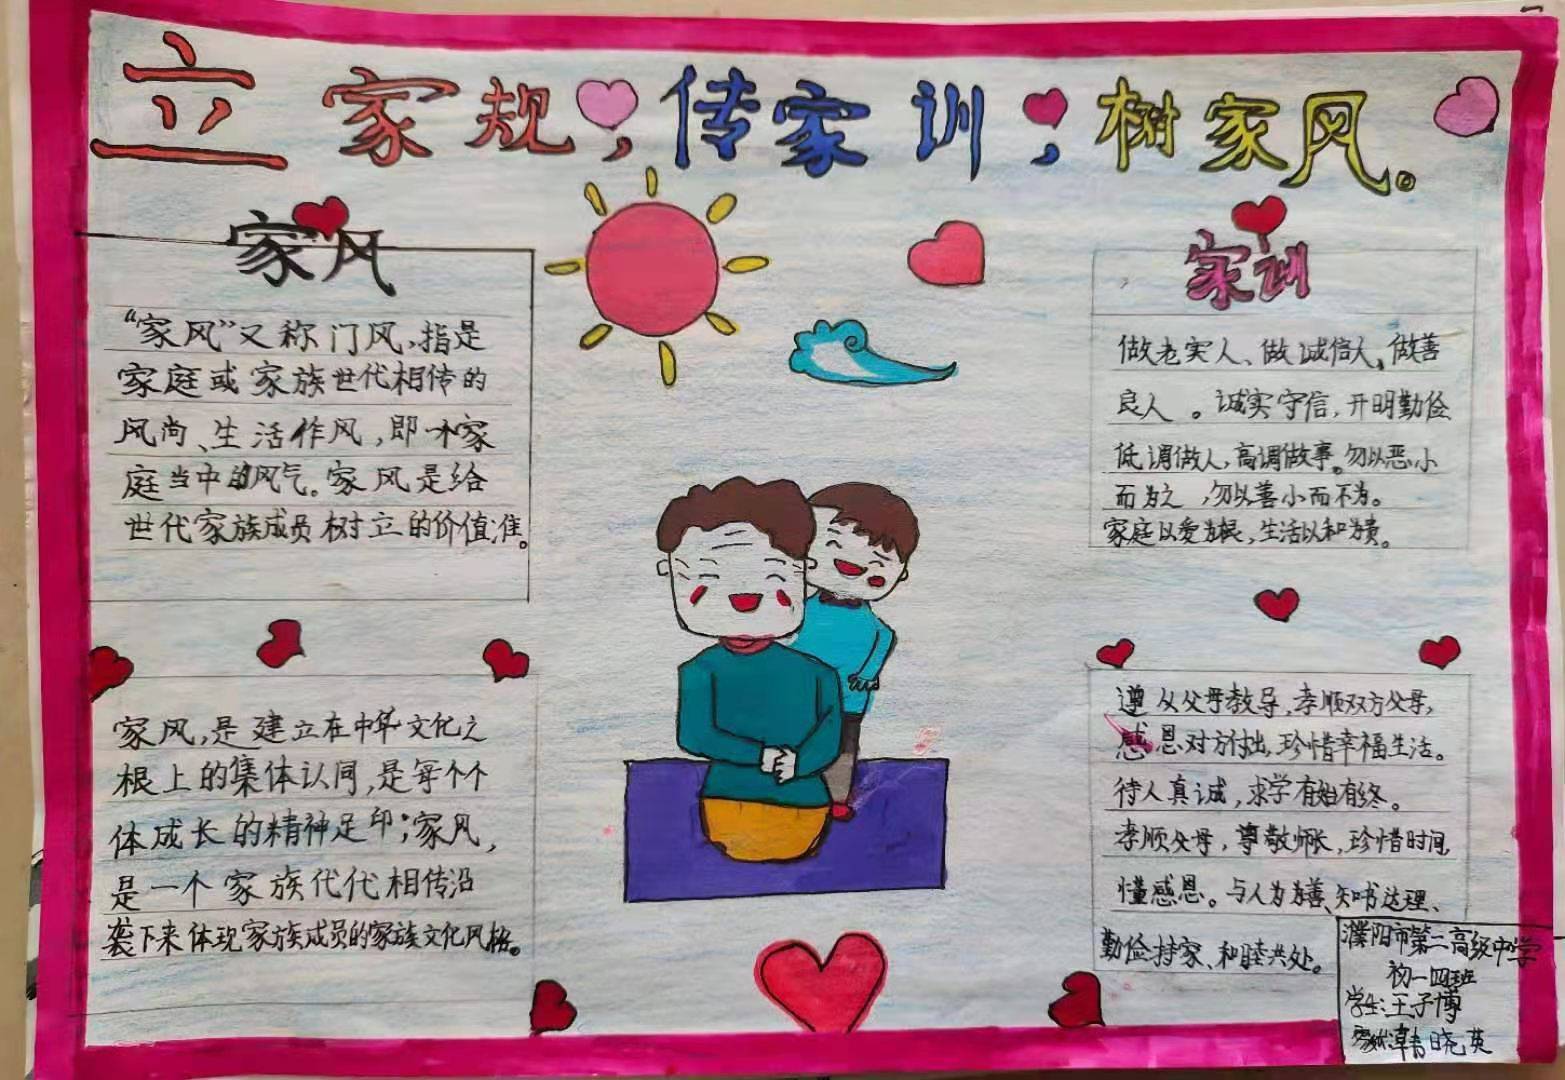 立家规，传家训，树家风。
家风
“家风”又称门风，指是
家庭或家族世代相传的
风尚、生活作风，即一个家
庭当中的风气。家风是给
世代家族成员树立的价值准。
家风，是建立在中华文化之
根上的集体认同，是每个个
体成长的精神足印；家风，
是一个家族代代相传沿
袭下来体现家族成员的家族文化风格。
家训
做老实人、做诚信人、做善
良人。诚实守信，开明勤俭
低调做人，高调做事。勿以恶小
而为之，勿以善小而不为。
家庭以爱为根，生活以和为贵。
遵从父母教导，孝顺双方父母，
感恩对方付出，珍惜幸福生活。
待人真诚，求学有始有终。
孝顺父母，尊敬师长，珍惜时间，
懂感恩。与人为善、知书达理、
勤俭持家、和睦共处。
濮阳市第二高级中学
初一四班
学生：王子博
家长：韩晓英